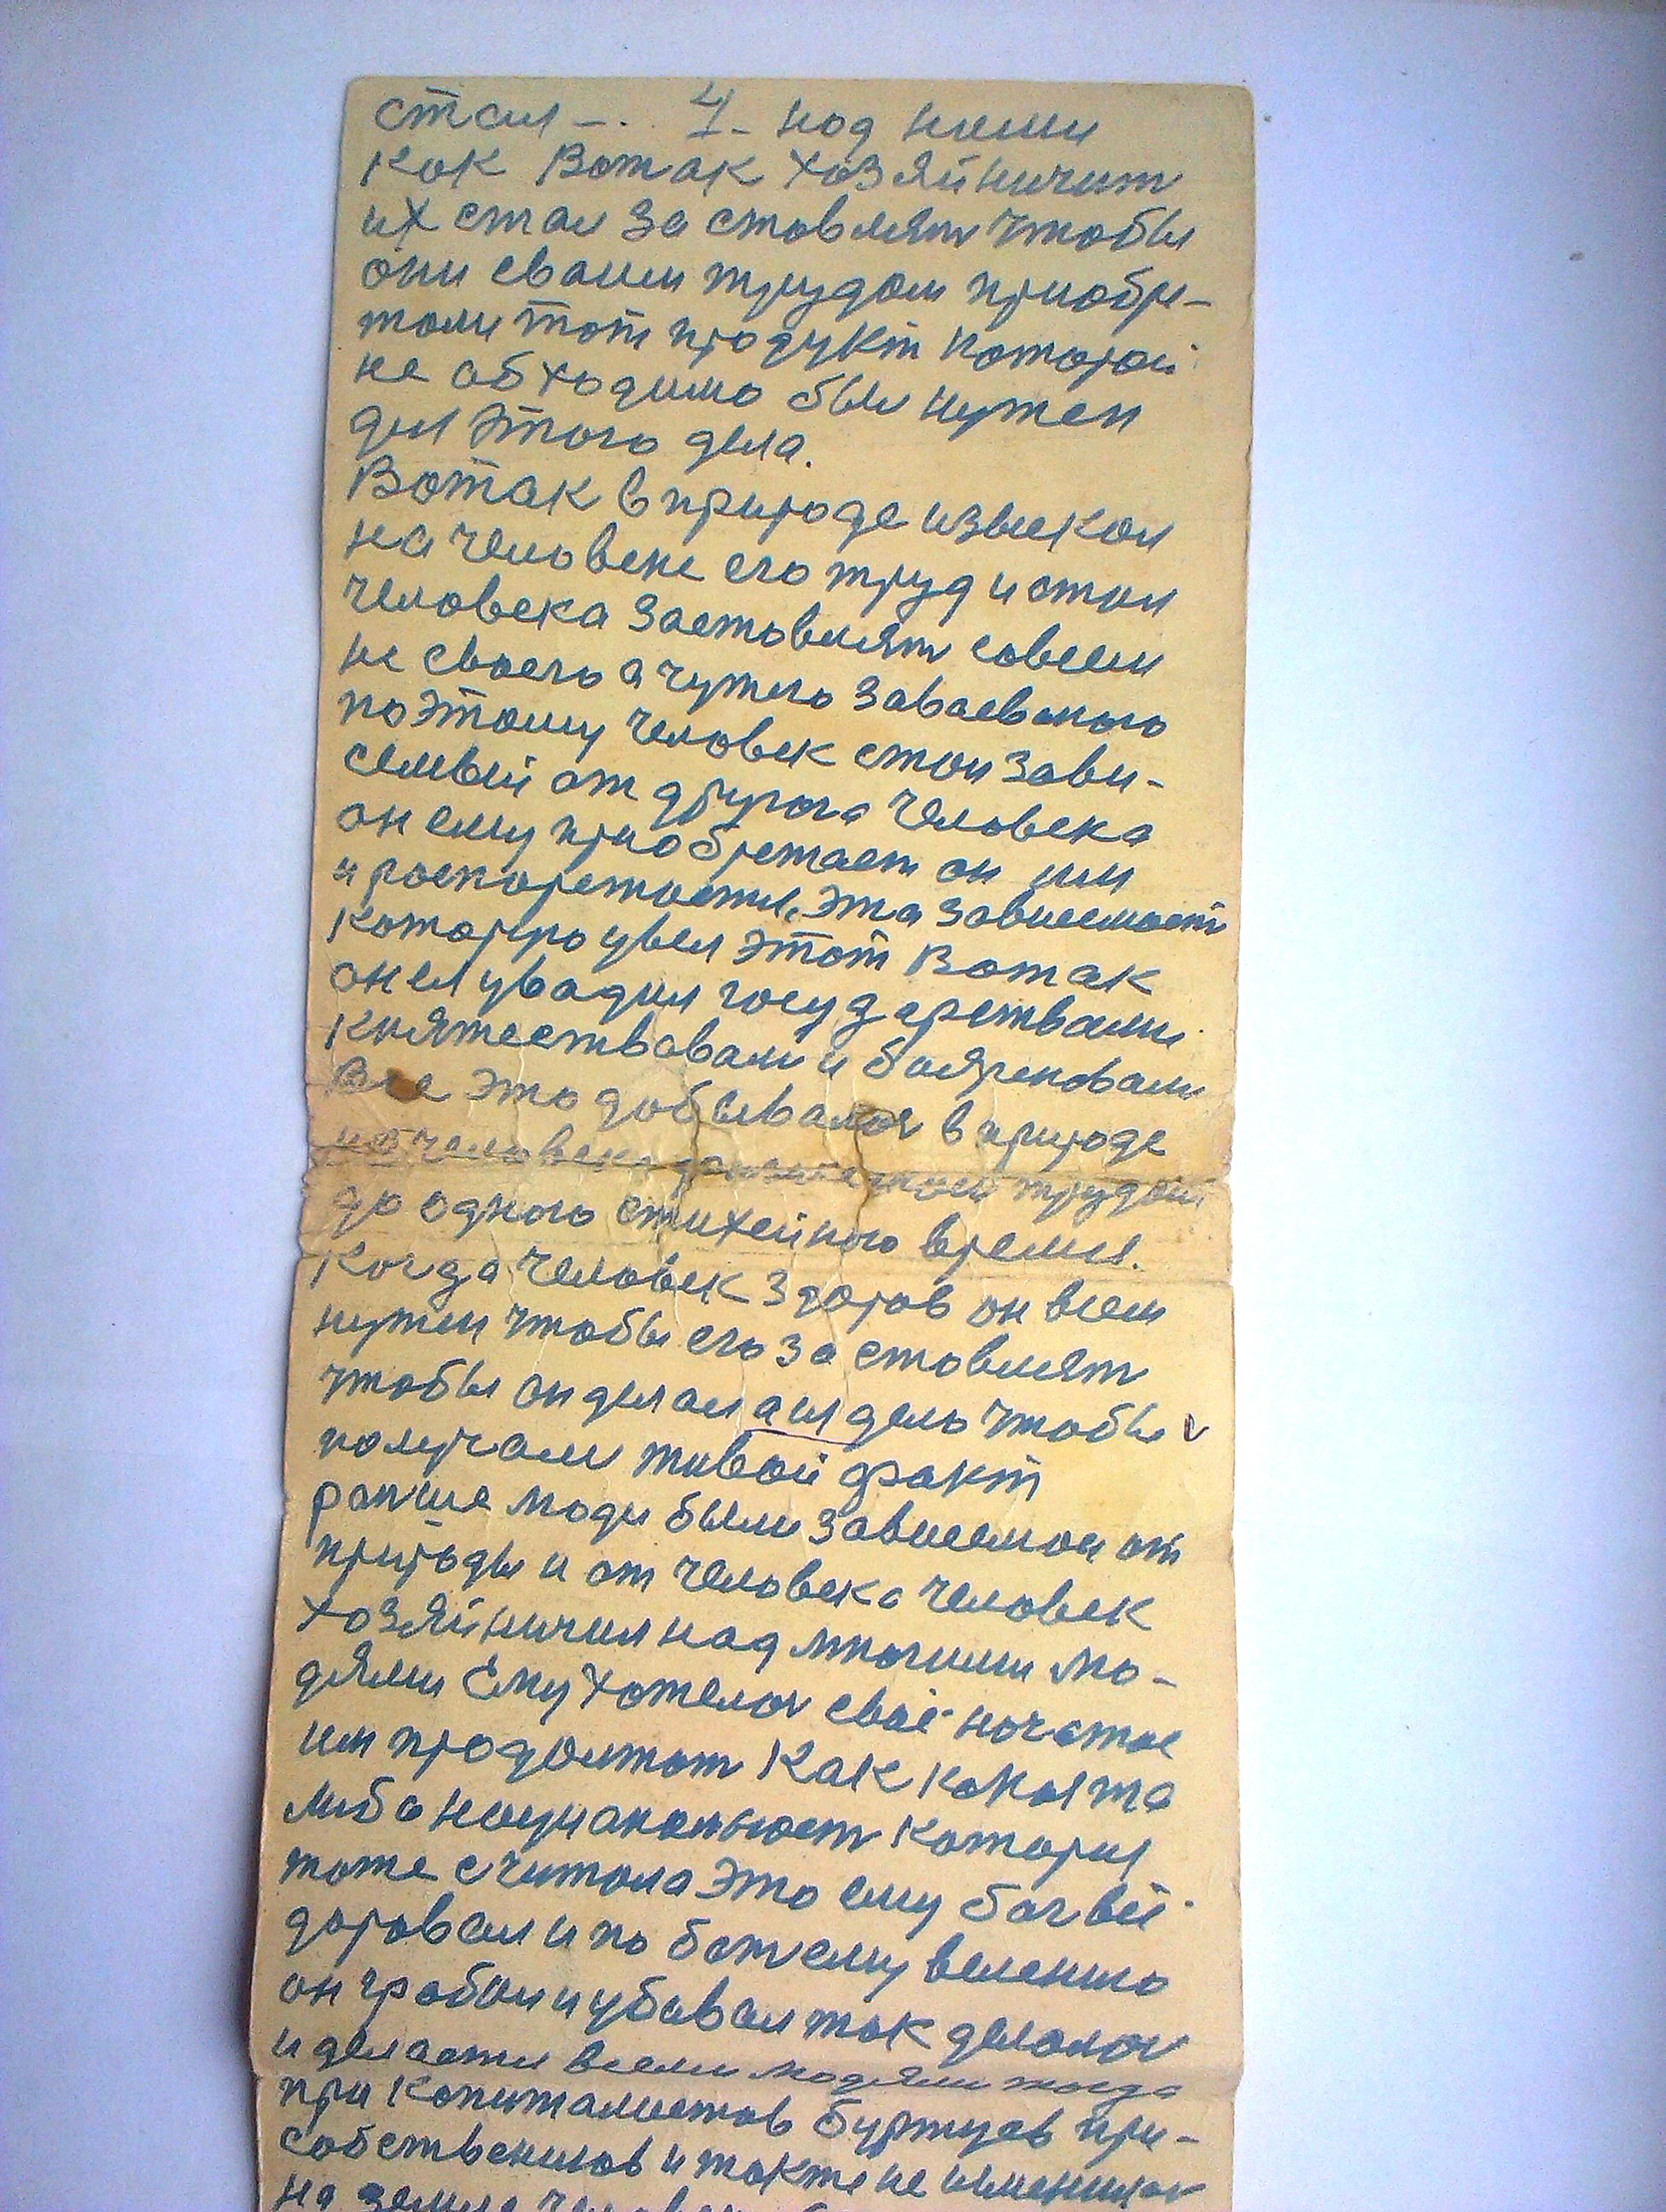 стал -. 4- над ними
как Вотак хозяйничит
их стал за ставлят чтобы
они сваим трудом приобре-
тали тот продукт каторай
не абходимо был нужен
для этого дела.
Вотак в природе извлекал
на человеке его труд и стал
человека заставлят савсем
не своего а чужого заваеваного
поэтому человек стал зави-
семый от другога человека
он ему приобретает он им
и распорежается, эта зависемаст
каторую увел этот Вотак
он ея увадил государствами
княжествавами и баярековами
Все это добывалоч в природе
на человеке трудом
до одного стихейного время.
Когда человек здоров он всем
нужен чтобы его за ставлят
чтобы он делал а ил дело чтобы
получали живой факт
ранше люди были зависемои от
природы и от человека человек
хозяйничил над многими лю-
дями Ему хотелоч своё начатое
им продолжат как какая та
либо нацуанальност каторая
тоже считала это ему бог всё
даравал и по божему велению
он грабил и убавал так делалоч
и делается всеми людями тогда
при капиталистов буржуев при-
собствеников и также не изменилоч
на земле